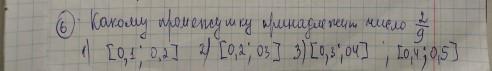 6) Какому промежутку принадлежит число 2/9
1) [0,1; 0,2] 2) [0,2; 03] 3) [0,3; 04] ; [0,4; 0,5]